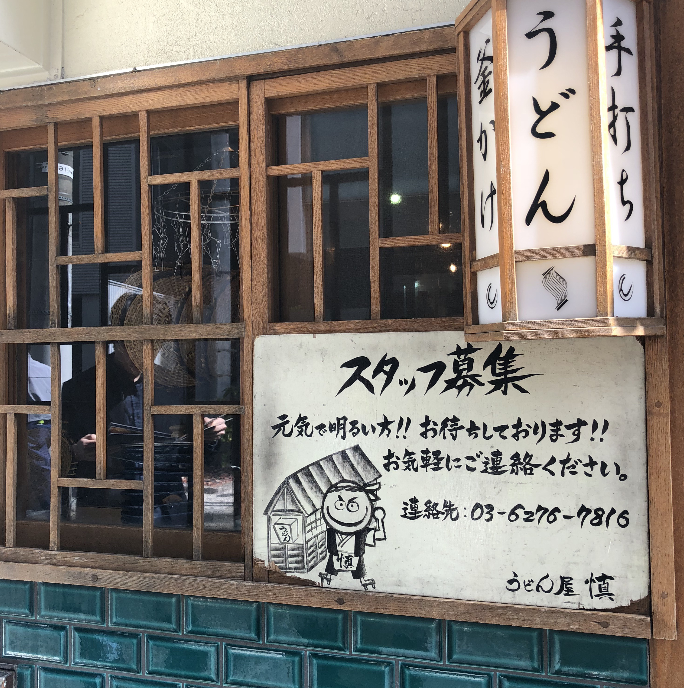 釜かけ
うどん
手打ち
スタッフ募集
元気で明るい方!! お待ちしております!!
お気軽にご連絡ください。
連絡先:03-6276-7816
慎
うどん屋 慎